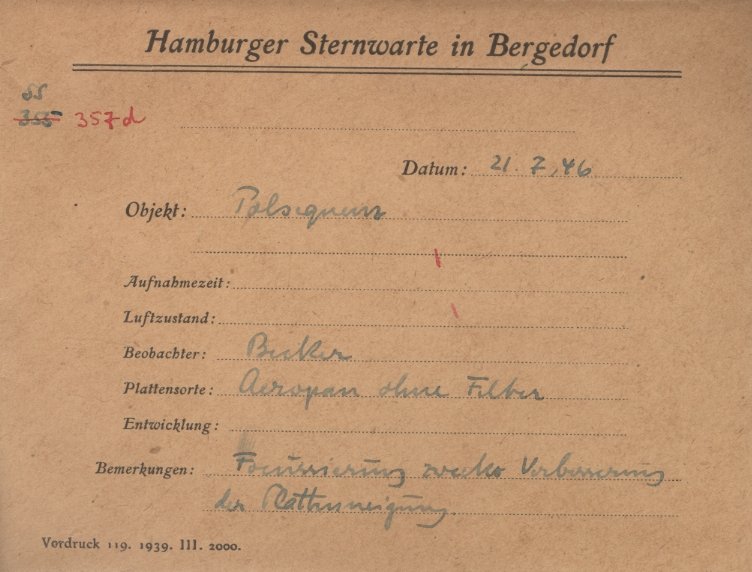 Hamburger Sternwarte in Bergedorf
SS
355 357d
Datum: 21.7.46
Objekt: Polsequenz
Aufnahmezeit:
Luftzustand:
Beobachter: Becker
Plattensorte: Aeropan ohne Filter
Entwicklung:
Bemerkungen: Focussierung zwecks Verbesserung
der Plattenneigung
Vordruck 119. 1939. III. 2000.